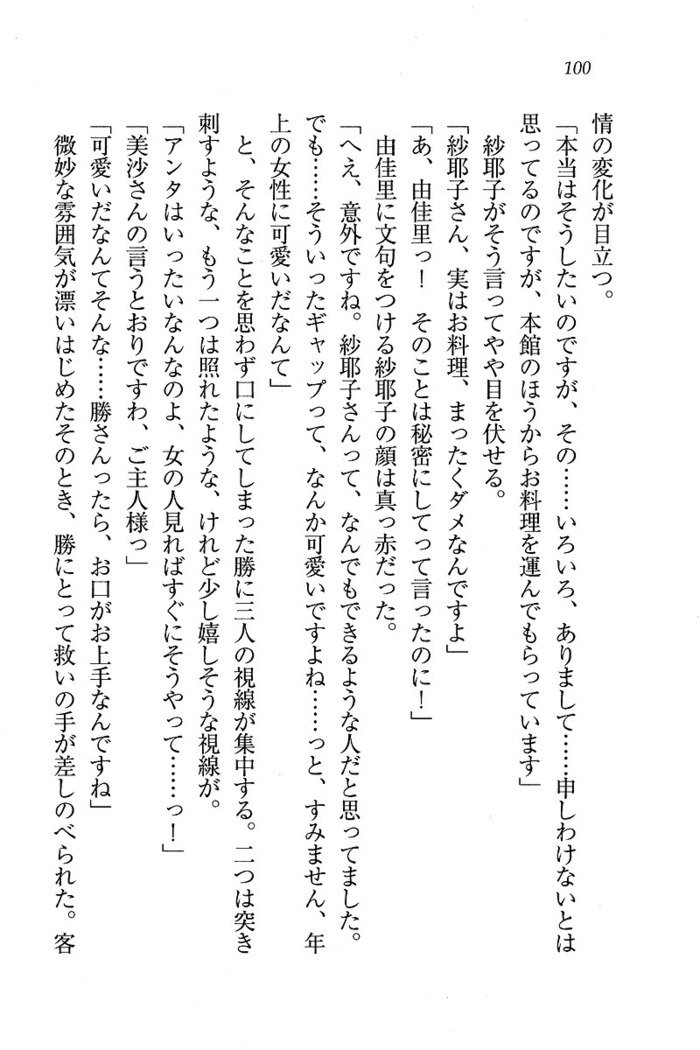 100
情の変化が目立つ。
「本当はそうしたいのですが、その……いろいろ、ありまして……申しわけないとは
思ってるのですが、本館のほうからお料理を運んでもらっています」
紗耶子がそう言ってやや目を伏せる。
「紗耶子さん、実はお料理、まったくダメなんですよ」
「あ、由佳里っ！　そのことは秘密にしてって言ったのに！」
由佳里に文句をつける紗耶子の顔は真っ赤だった。
「へえ、意外ですね。紗耶子さんって、なんでもできるような人だと思ってました。
でも……そういったギャップって、なんか可愛いですよね……っと、すみません、年
上の女性に可愛いだなんて」
と、そんなことを思わず口にしてしまった勝に三人の視線が集中する。二つは突き
刺すような、もう一つは照れたような、けれど少し嬉しそうな視線が。
「アンタはいったいなんなのよ、女の人見ればすぐにそうやって……っ！」
「美沙さんの言うとおりですわ、ご主人様っ」
「可愛いだなんてそんな……勝さんったら、お口がお上手なんですね」
微妙な雰囲気が漂いはじめたそのとき、勝にとって救いの手が差しのべられた。客